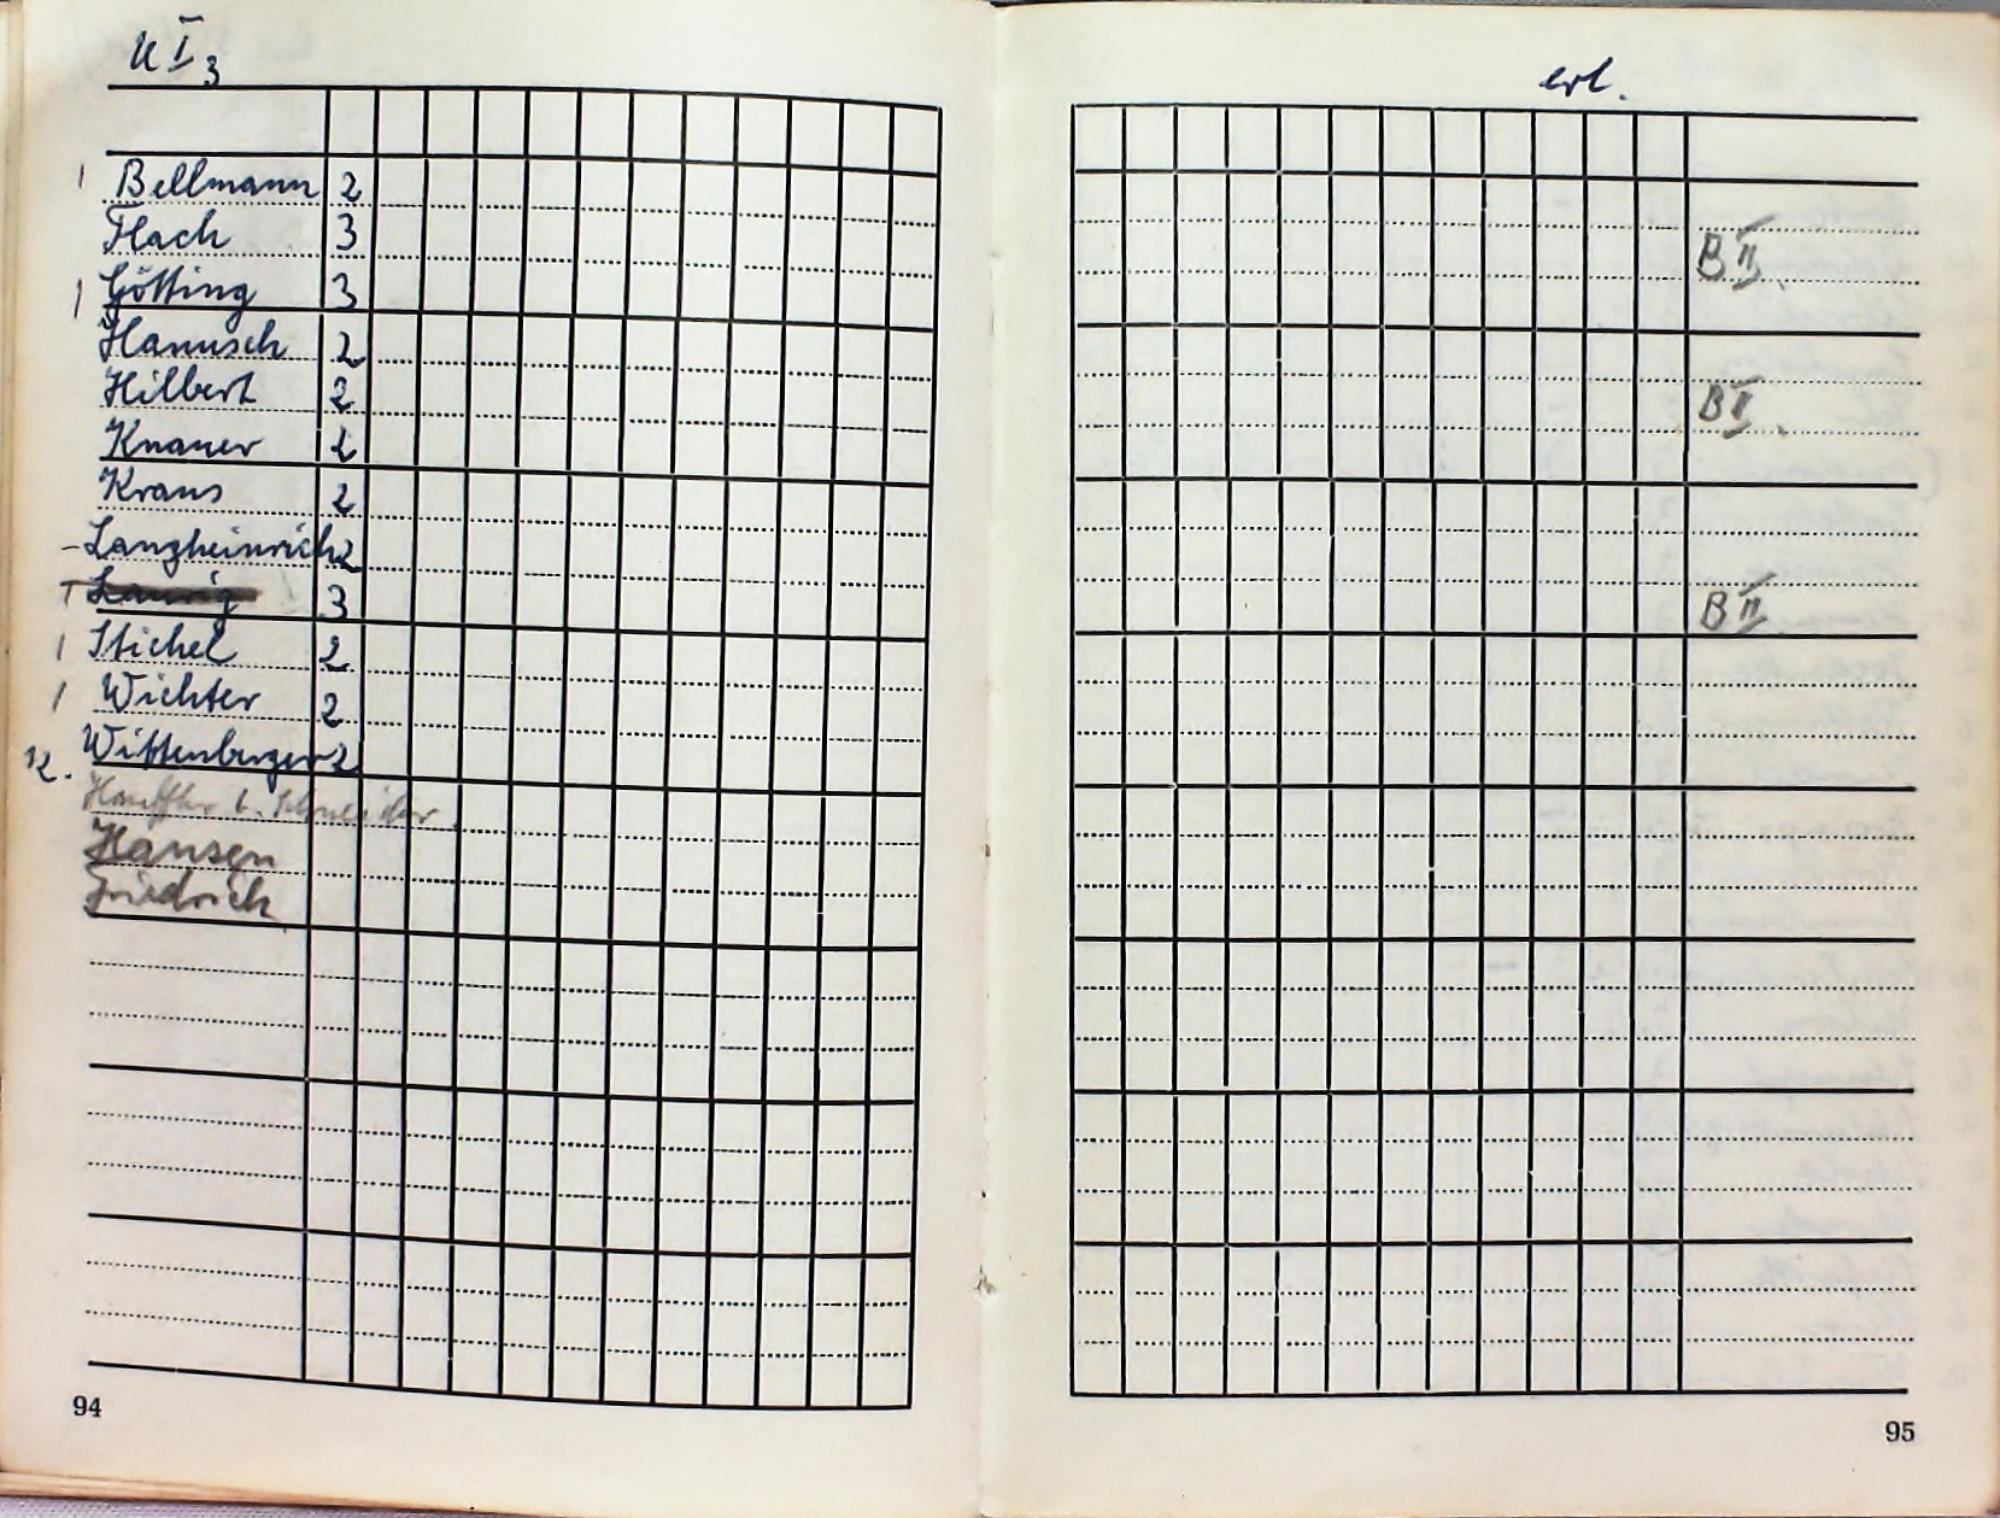 U I 3
1 Bellmann 2
Flach 3
1 Götting 3
Hanusch 2
Hilbert 2
Knauer 2
Kraus 2
- Langheinrich 2
3
1 Stichel 2
1 Wichter 2
K. Wittenberger 2
b. Schneider.
Hansen
Friedrich
94
erl.
B II
B II
B II
95